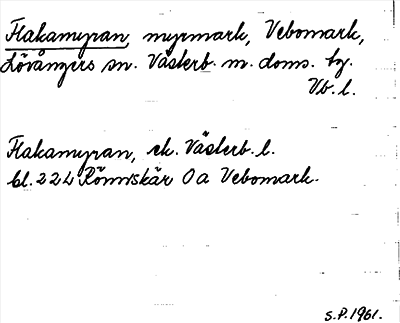 Flakamyran, myrmark, Vebomark,
Lövångers sn. Västerb. m. doms. by.
Vb. l.
Flakamyran, ek. Västerb. l.
bl. 224 Rönnskär Oa Vebomark.
S.P. 1961.